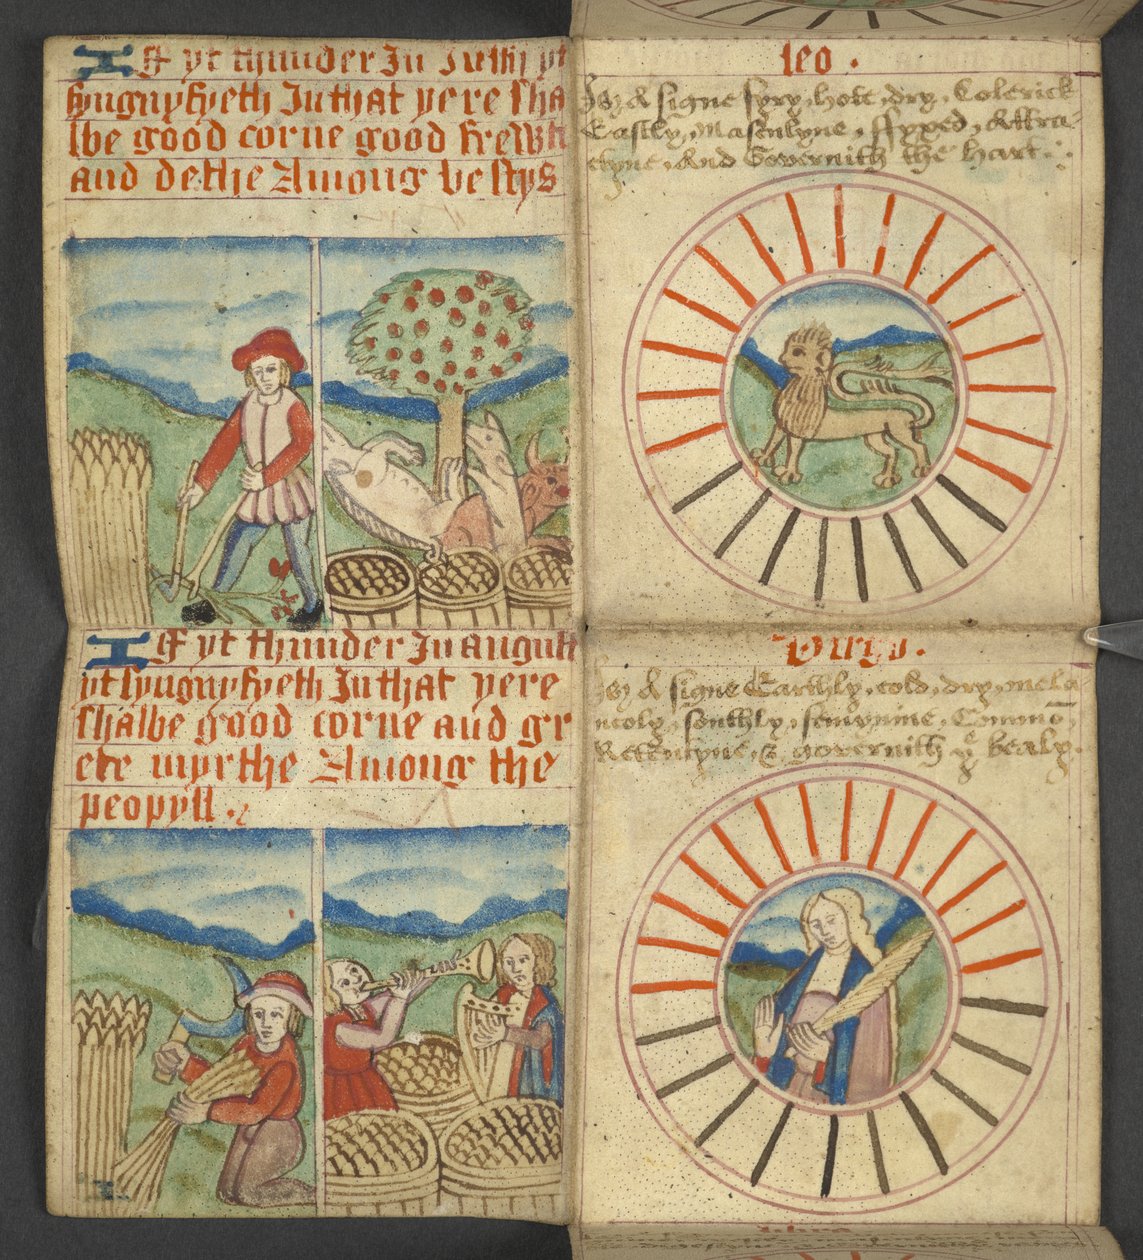 If yt thunder In Jullij yt
syngnyfyeth In that yere sha
lbe good corne good frewt
and dethe Among bestys
leo .
Is A signe fyry, hote, dry, Colerick
Eastly, masculyne, ffyxed, Attra-
ctyne, And Governith the Hart.
If yt thunder In August
yt syngnyfyeth In that yere
shalbe good corne and gr
ete myrthe Among the
peopyll .
Virgo.
Is A signe Earthly, cold, dry, mela
ncoly, southly, femynine, Commō,
Retentyne, & governith yᵉ bealy.